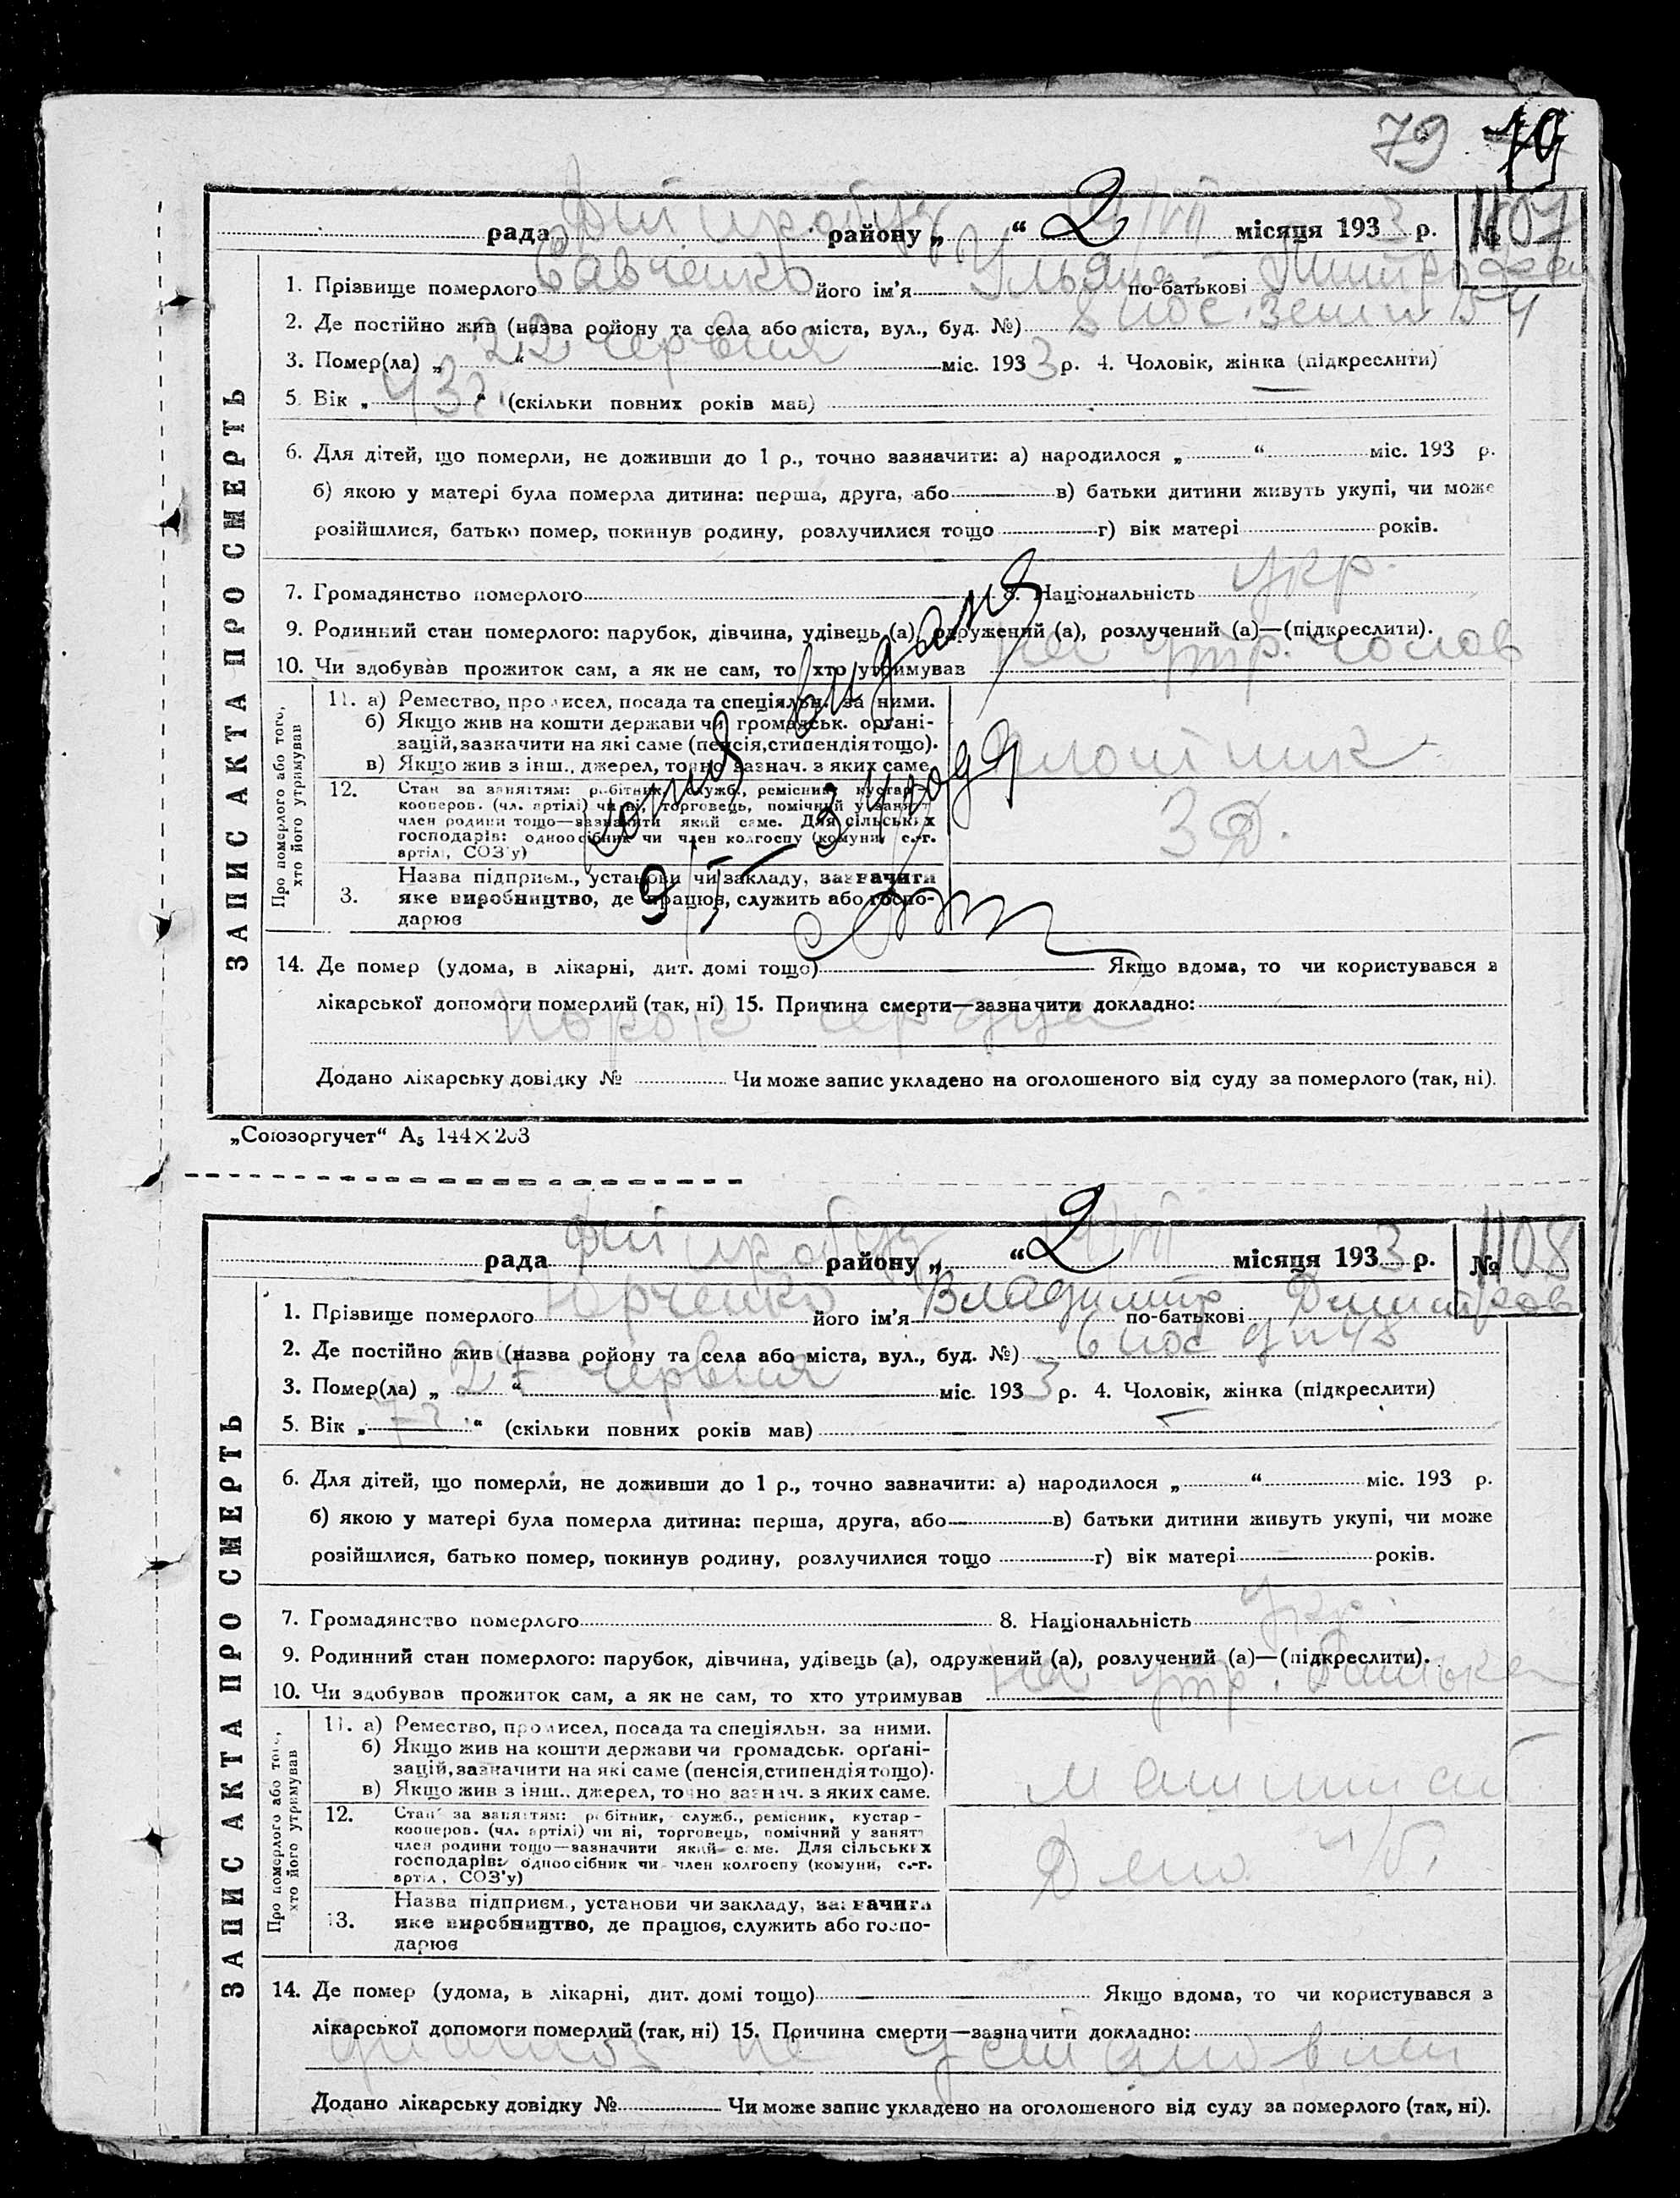 79 79
рада районy „ “ 2 /VII місяця 1933 р. № 1107
1. Прізвище померлого Савченко його ім'я Ульяна по-батькові
2. Де постійно жив (назва ройону та села або міста, вул., буд. №) 8 пос.
3. Помер(ла) „ 22 “ червня міс. 1933 р. 4. Чоловік, жінка (підкреслити)
5. Вік „ 43 г. “ (скільки повних років мав)
6. Для дітей, що померли, не доживши до 1 р., точно зазначити: а) народилося „ “ міс. 193 р.
б) якою у матері була померла дитина: перша, друга, або в) батьки дитини живуть укупі, чи може
розійшлися, батько помер, покинув родину, розлучилися тощо г) вік матері років.
7. Громадянство померлого 8. Національність укр.
9. Родинний стан померлого: парубок, дівчина, удівець (а), одружений (а), розлучений (а)—(підкреслити).
10. Чи здобував прожиток сам, а як не сам, то хто утримував на утр. чолов
Про померлого або того, хто його утримував
11. а) Ремество, промисел, посада та спеціяльн. за ними.
б) Якщо жив на кошти держави чи громадськ. органі-
зацій, зазначити на які саме (пенсія, стипендія тощо).
в) Якщо жив з інш., джерел, точно зазнач. з яких саме.
плотник
12. Стан за заняттям: робітник, служб., ремісник, кустар-
кооперов. (чл. артілі) чи ні, торговець, помічний у занятт
член родини тощо—зазначити який саме. Для сільських
господарів: одноосібник чи член колгоспу (комуни, с.-г.
артілі, СОЗ'у)
ЗД.
3. Назва підприєм., установи чи закладу, зазначити
яке виробництво, де працює, служить або госпо-
дарює
Копия выдана
9/V
14. Де помер (удома, в лікарні, дит. домі тощо) Якщо вдома, то чи користувався з
лікарської допомоги померлий (так, ні) 15. Причина смерти—зазначити докладно:
порок сердца
Додано лікарську довідку № Чи може запис укладено на оголошеного від суду за померлого (так, ні).
ЗАПИС АКТА ПРО СМЕРТЬ
„Союзоргучет“ А5 144×203
рада районy „ “ 2 /VII місяця 1933 р. № 1108
1. Прізвище померлого Юрченко його ім'я Владимир по-батькові Дмитров
2. Де постійно жив (назва ройону та села або міста, вул., буд. №) 6 пос 48
3. Помер(ла) „ 27 “ червня міс. 1933 р. 4. Чоловік, жінка (підкреслити)
5. Вік „ 7 г. “ (скільки повних років мав)
6. Для дітей, що померли, не доживши до 1 р., точно зазначити: а) народилося „ “ міс. 193 р.
б) якою у матері була померла дитина: перша, друга, або в) батьки дитини живуть укупі, чи може
розійшлися, батько помер, покинув родину, розлучилися тощо г) вік матері років.
7. Громадянство померлого 8. Національність Укр.
9. Родинний стан померлого: парубок, дівчина, удівець (а), одружений (а), розлучений (а)—(підкреслити).
10. Чи здобував прожиток сам, а як не сам, то хто утримував на утр. батька
Про померлого або того, хто його утримував
11. а) Ремество, промисел, посада та спеціяльн. за ними.
б) Якщо жив на кошти держави чи громадськ. органі-
зацій, зазначити на які саме (пенсія, стипендія тощо).
в) Якщо жив з інш., джерел, точно зазнач. з яких саме.
машинист
12. Стан за заняттям: робітник, служб., ремісник, кустар-
кооперов. (чл. артілі) чи ні, торговець, помічний у занятт
член родини тощо—зазначити який саме. Для сільських
господарів: одноосібник чи член колгоспу (комуни, с.-г.
артіл, СОЗ'у)
Депо
13. Назва підприєм., установи чи закладу, зазначити
яке виробництво, де працює, служить або госпо-
дарює
14. Де помер (удома, в лікарні, дит. домі тощо) Якщо вдома, то чи користувався з
лікарської допомоги померлий (так, ні) 15. Причина смерти—зазначити докладно:
диагноз не установлен
Додано лікарську довідку № Чи може запис укладено на оголошеного від суду за померлого (так, ні).
ЗАПИС АКТА ПРО СМЕРТЬ